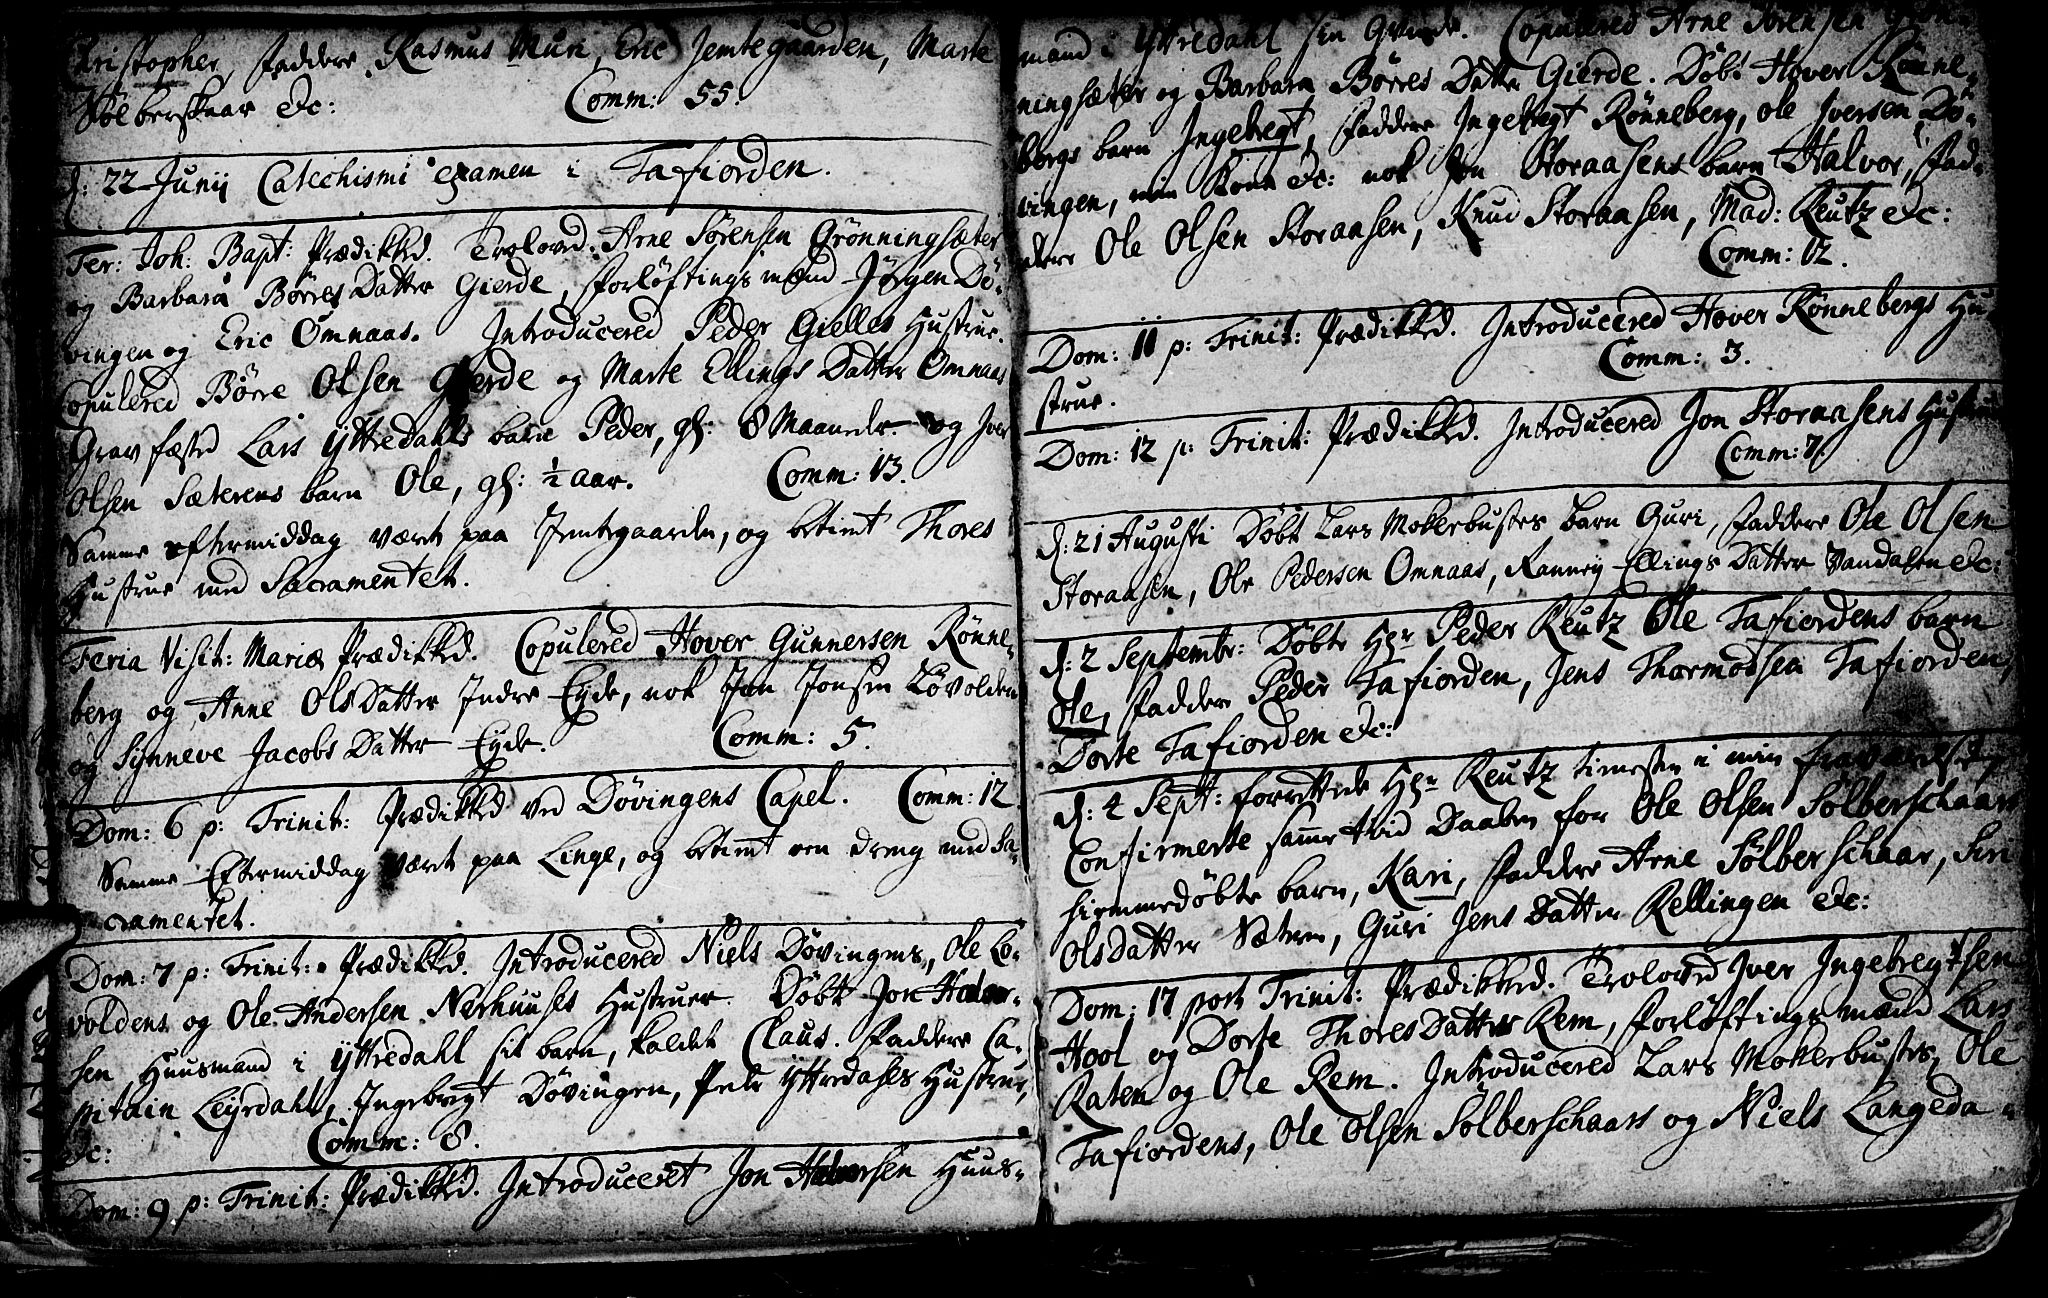 Christopher, Faddere Rasmus Muri, Eric Jemtegaarden, Marte
Sølberskaar &c: Comm: 55.
d: 22 Junij Catechismi examen i Tafiorden.
Fer: Joh: Bapt: Prædikked. Trolovd. Arne Sørensen Grønningsæter
og Barbara Børres Datter Gierde, forløftings mænd Jørgen Dø-
vingen og Eric Omnaas. Introducered Peder Gielles Hustrue.
Copulered Børre Olsen Gierde og Marte Ellings Datter Omnaas
Grav fæsted Lars Yttredahls barn Peder, gl: 8 Maaneder og Iver
Olsen Sæterens barn Ole, gl: ½ aar. Comm: 13.
Samme eftermiddag været paa Jemtegaarden, og betient Thores
Hustrue med Sacramentet.
Feria Visit: Mariæ Prædikked. Copulered Hover Gunnersen Rønne-
berg og Anne Ols Datter Indre Eyde, nok Jon Jonsen Løvolden
og Synneve Jacobs Datter Eyde. Comm: 5.
Dom: 6 p: Trinit: Prædikked ved Døvingens Capel. Comm: 12
Samme Eftermiddag været paa Linge, og betient en dreng med Sa-
cramentet.
Dom: 7 p: Trinit: Prædikked. Introducered Niels Døvingens, Ole Lø-
voldens og Ole Andersen Nerhuuses Hustruer. Døbt Jon Halvor-
sen Huusmand i Yttredahl sit barn, kaldet Claus. Faddere Ca-
pitain Leyrdahl, Ingebregt Døvingen, Peder Yttredahls Hustrue,
&c: Comm: 8.
Dom: 9 p: Trinit: Prædikked. Introduceret Jon Halvorsen Huus-
mand i Yttredahl sin Qvinde. Copulered Arne Sørensen Grøn-
ningsæter og Barbara Børres Datter Gierde. Døbt Hover Rønne-
bergs barn Ingebregt, Faddere Ingebregt Rønneberg, Ole Iversen Dø-
vingen, min Kone &c: nok Jon Storaasens barn Halvor, Fad-
dere Ole Olsen Storaasen, Knud Storaasen, Mad: Reutz &c:
Comm: 12.
Dom: 11 p: Trinit: Prædikked. Introducered Hover Rønnebergs Hu-
strue. Comm: 3.
Dom: 12 p: Trinit: Prædikked. Introducered Jon Storaasens Hustrue
Comm: 7.
d: 21 Augusti Døbt Lars Moklerbustes barn Guri, Faddere Ole Olsen
Storaasen, Ole Pedersen Omnaas, Ranney Ellings Datter Vandalsen &c:
d: 2 Septembr: Døbte Hr Peder Reutz Ole Tafiordens barn
Ole, Faddere Peder Tafiorden, Jens Thormodsen Tafiorden,
Dorte Tafiorden &c:
d: 4 Sept: forrettede Hr Reutz tienesten i min fraværelse,
Confirmerte samme tiid Daaben for Ole Olsen Sølberschaars
hiemmedøbte barn, Kari, Faddere Arne Sølberschaar, Siri
Olsdatter Sætren, Guri Jens Datter Rellingen &c:
Dom: 17 post Trinit: Prædikked. Trolovd Iver Ingebregtsen
Hool og Dorte Thores Datter Rem, forløftings mænd Lars
Raten og Ole Rem. Introducered Lars Moklerbustes, Ole
Tafiordens, Ole Olsen Sølberschaars og Niels Langeda-